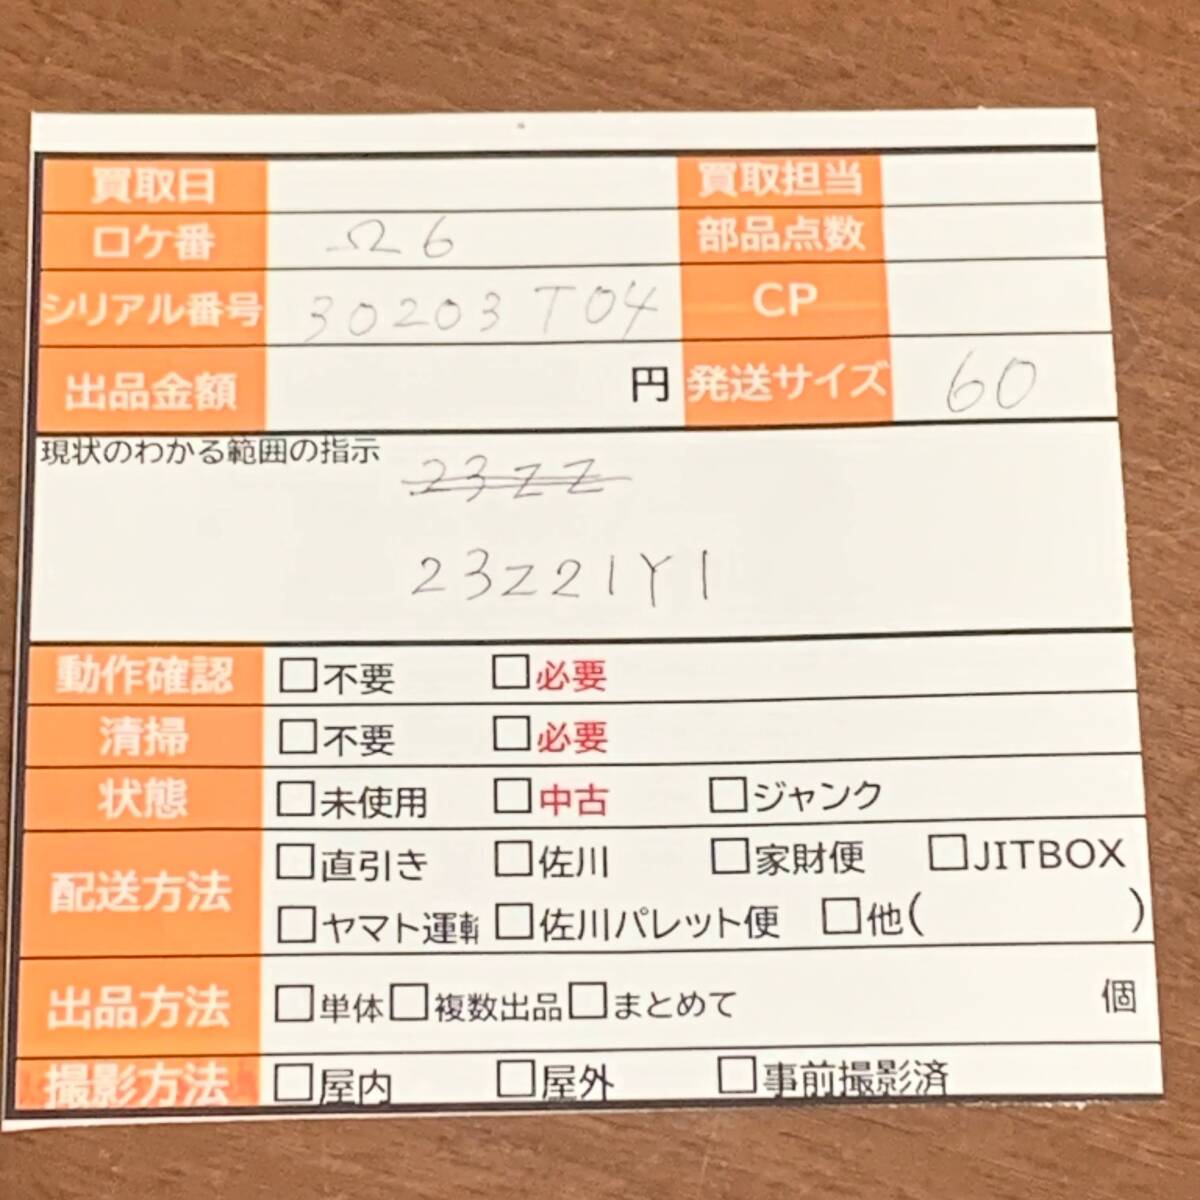 買取日 買取担当
ロケ番 Ω6 部品点数
シリアル番号 30203T04 CP
出品金額 円 発送サイズ 60
現状のわかる範囲の指示
23ZZ
23Z21Y1
動作確認 □不要 □必要
清掃 □不要 □必要
状態 □未使用 □中古 □ジャンク
配送方法 □直引き □佐川 □家財便 □JITBOX
□ヤマト運転 □佐川パレット便 □他( )
出品方法 □単体 □複数出品 □まとめて 個
撮影方法 □屋内 □屋外 □事前撮影済